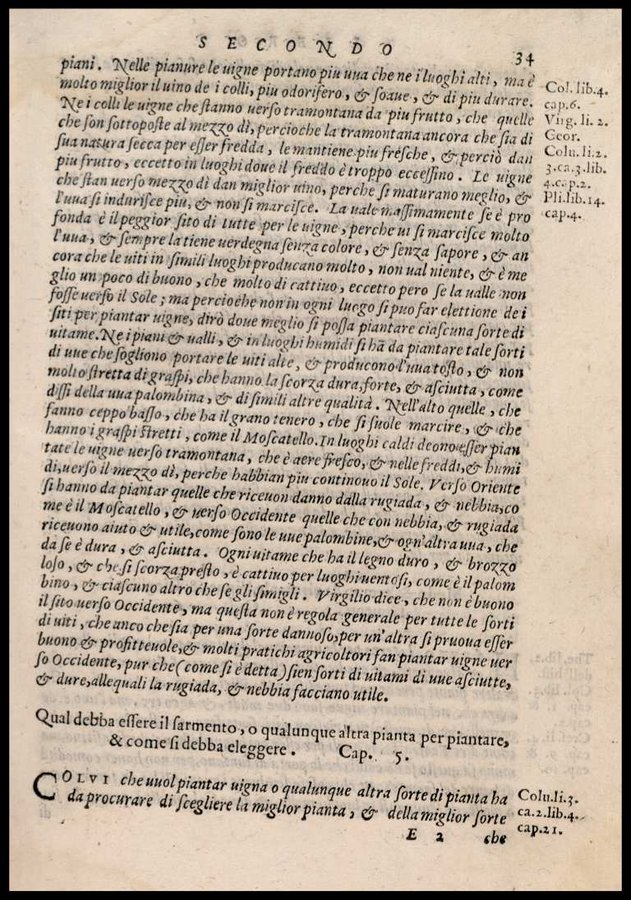 SECONDO
34
piani. Nelle pianure le uigne portano piu uua che ne i luoghi alti, ma è
molto miglior il uino de i colli, piu odorifero, & soaue, & di piu durare.
Ne i colli le uigne che ſtanno uerſo tramontana da piu frutto, che quelle
che ſon ſottopoſte al mezzo dì, percioche la tramontana ancora che ſia di
ſua natura ſecca per eſſer fredda, le mantiene piu freſche, & perciò dan
piu frutto, eccetto in luoghi doue il freddo è troppo ecceſſino. Le uigne
che ſtan uerſo mezzo dì dan miglior uino, perche ſi maturano meglio, &
l'uua ſi induriſce piu, & non ſi marciſce. La uale maſſimamente ſe è pro
fonda è il peggior ſito di tutte per le uigne, perche ui ſi marciſce molto
l'uua, & ſempre la tiene uerdegna ſenza colore, & ſenza ſapore, & an
cora che le uiti in ſimili luoghi producano molto, non ual niente, & è me
glio un poco di buono, che molto di cattiuo, eccetto pero ſe la ualle non
foſſe uerſo il Sole; ma percioche non in ogni luogo ſi puo far elettione de i
ſiti per piantar uigne, dirò doue meglio ſi poſſa piantare ciaſcuna ſorte di
uitame. Ne i piani & ualli, & in luoghi humidi ſi hā da piantare tale ſorti
di uue che ſogliono portare le uiti alte, & producono l'uua toſto, & non
molto ſtretta di graſpi, che hanno la ſcorza dura, forte, & aſciutta, come
diſſi della uua palombina, & di ſimili altre qualità. Nell'alto quelle, che
fanno ceppo baſſo, che ha il grano tenero, che ſi ſuole marcire, & che
hanno i graſpi ſtretti, come il Moſcatello. In luoghi caldi deono eſſer pian
tate le uigne uerſo tramontana, che è aere freſco, & nelle freddi, & humi
di, uerſo il mezzo dì, perche habbian piu continouo il Sole. Verſo Oriente
ſi hanno da piantar quelle che riceuon danno dalla rugiada, & nebbia, co
me è il Moſcatello, & uerſo Occidente quelle che con nebbia, & rugiada
riceuono aiuto & utile, come ſono le uue palombine, & ogn'altra uua, che
da ſe è dura, & aſciutta. Ogni uitame che ha il legno duro, & brozzo
loſo, & che ſi ſcorza preſto, è cattiuo per luoghi uentoſi, come è il palom
bino, & ciaſcuno altro che ſe gli ſimigli. Virgilio dice, che non è buono
il ſito uerſo Occidente, ma queſta non è regola generale per tutte le ſorti
di uiti, che anco che ſia per una ſorte dannoſo, per un'altra ſi pruoua eſſer
buono & profitteuole, & molti pratichi agricoltori fan piantar uigne uer
ſo Occidente, pur che (come ſi è detta) ſien ſorti di uitami di uue aſciutte,
& dure, alle quali la rugiada, & nebbia facciano utile.
Col. lib. 4.
cap. 6.
Virg. li. 2.
Geor.
Colu. li. 2.
3. ca. 3. lib.
4. cap. 2.
Pli. lib. 14.
cap. 4.
Qual debba eſſere il ſarmento, o qualunque altra pianta per piantare,
& come ſi debba eleggere. Cap. 5.
COLVI che uuol piantar uigna o qualunque altra ſorte di pianta ha
da procurare di ſcegliere la miglior pianta, & della miglior ſorte
Colu. li. 3.
ca. 2. lib. 4.
cap. 21.
E 2 che